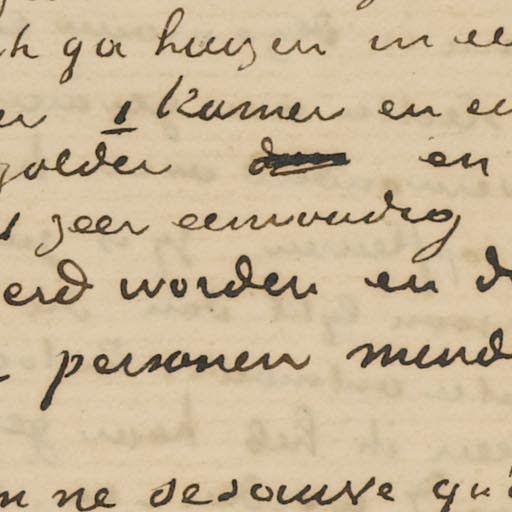 ik ga huizen in ee
er 1 kamer en ee
zolder en
zeer eenvoudig
eerd worden en d
personen mind
on ne se sauve qu'